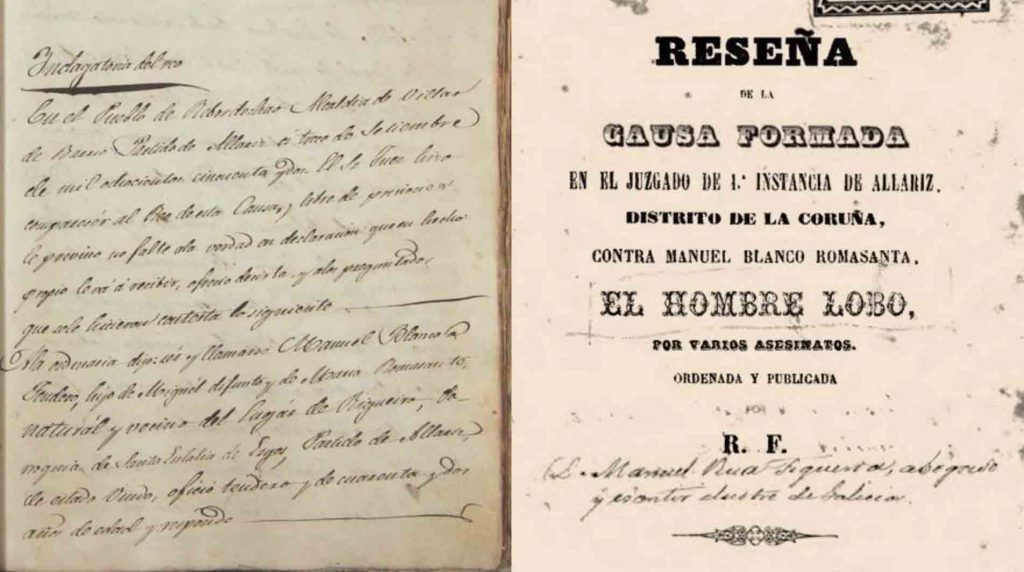 Indagatoria del reo
En el Pueblo de Rebordechao Alcaldia de Villar
de Barrio Partido de Allariz a trece de Setiembre
de mil ochocientos cincuenta y dos. El Sr Juez hizo
comparecer al Reo de esta Causa, y libre de prisiones
le previno no falte a la verdad en declaracion que en hecho
propio le vá á recibir, ofreció decirla y a las preguntas
que se le hicieron contesta lo siguiente
A la ordinaria dijo: ser y llamarse Manuel Blanco
Tendero, hijo de Miguél defunto y de Maria Romasanta,
naturál y vecino del lugar de Rigueiro, Pa-
rroquia de Santa Eulalia de Esgos, Partido de Allariz
de estado Viudo, oficio tendero y de cuarenta y dos
años de edad y responde
RESEÑA
DE LA
CAUSA FORMADA
EN EL JUZGADO DE 1.ª INSTANCIA DE ALLARIZ,
DISTRITO DE LA CORUÑA,
CONTRA MANUEL BLANCO ROMASANTA,
EL HOMBRE LOBO,
POR VARIOS ASESINATOS.
ORDENADA Y PUBLICADA
POR
R. F.
D. Manuel Rua Figueroa, abogado
y escritor ilustre de Galicia.